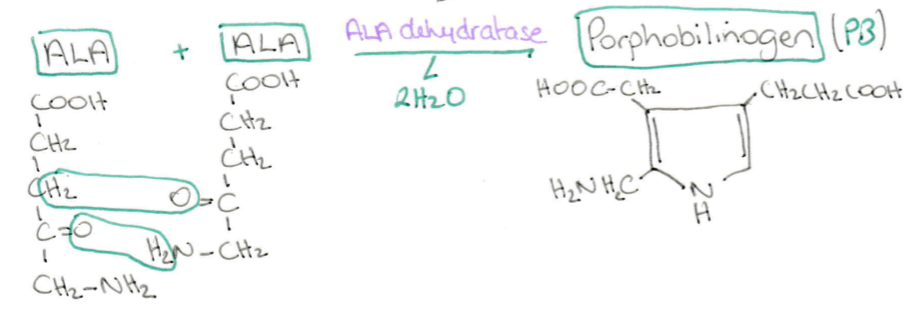 ALA + ALA ALA dehydratase Porphobilinogen (PB)
2H2O
COOH
CH2
CH2
C=O
CH2-NH2
COOH
CH2
CH2
O=C
H2N-CH2
HOOC-CH2 CH2CH2COOH
H2NH2C
N
H